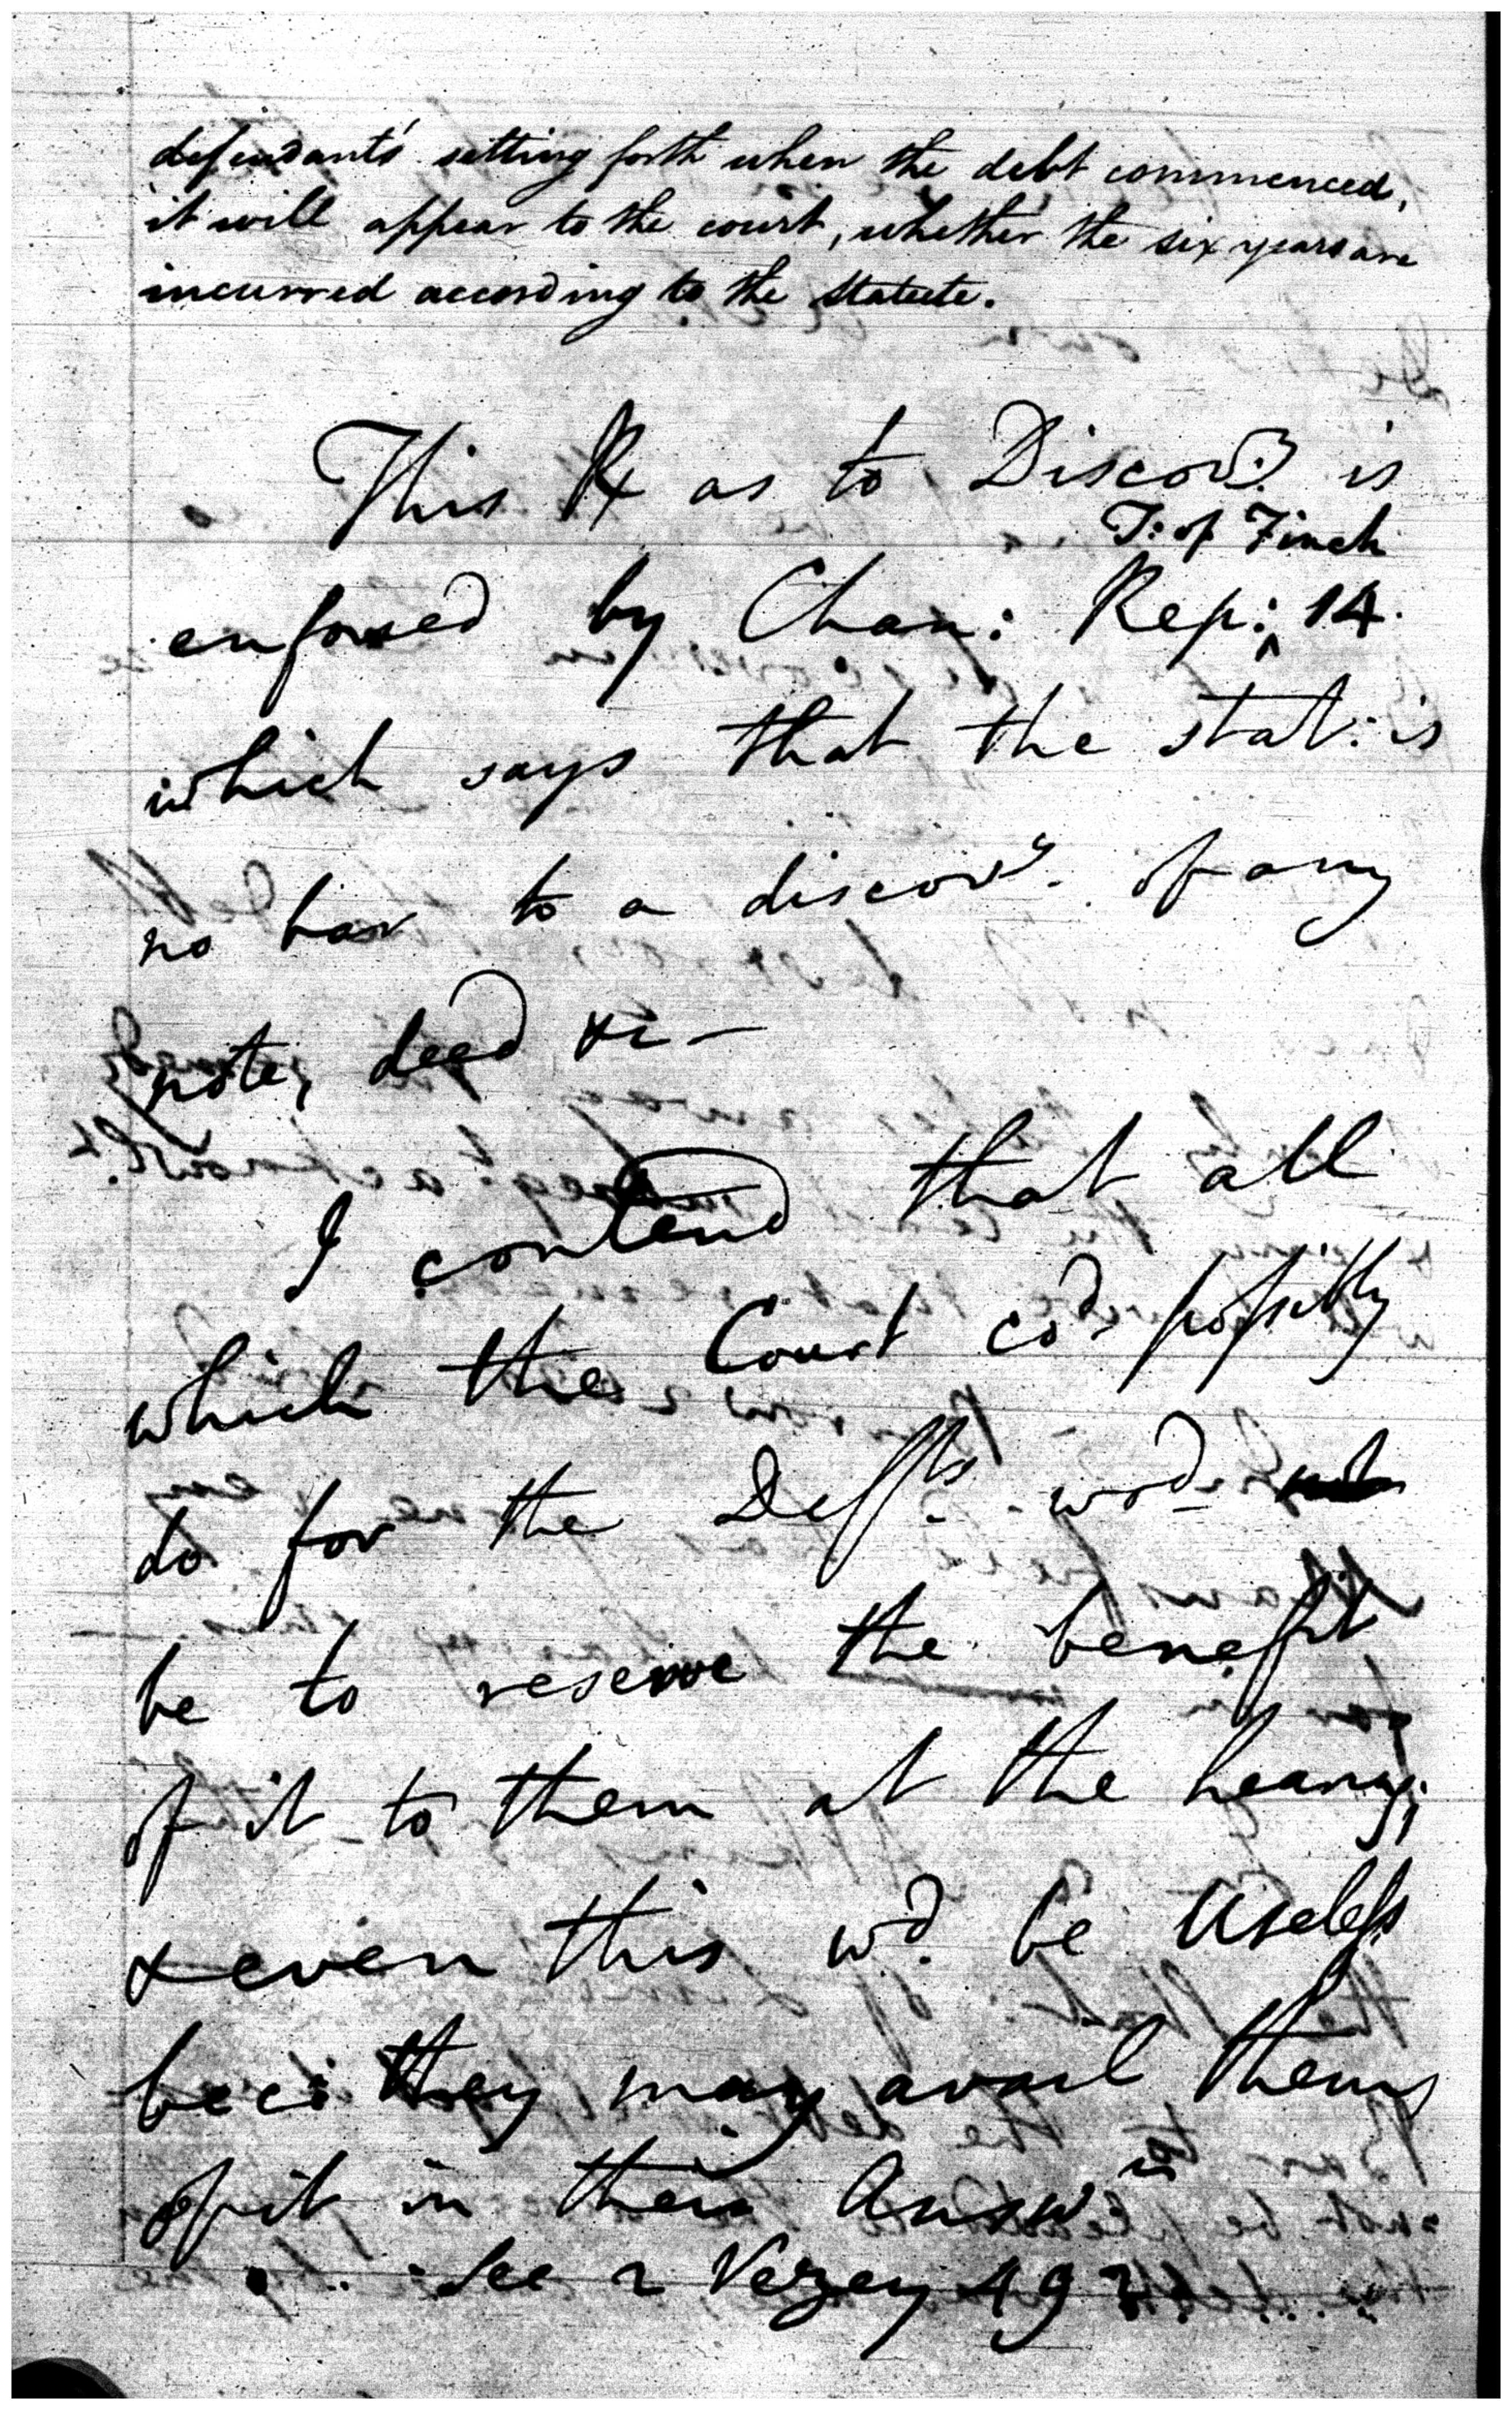 defendants' setting forth when the debt commenced,
it will appear to the court, whether the six years are
incurred according to the statute.
This as to Discovy. is
T: of Finch
enforced by Chan: Rep: 14.
which says that the stat: is
no bar to a discovy. of any
note, deed &c—
I contend that all
which the Court cod. possibly
do for the Defts. wod.
be to reserve the benefit
of it to them at the hearg;
& even this wd. be Useless
becs they may avail thems
of it in their Answrs
See 2 Vezey 492